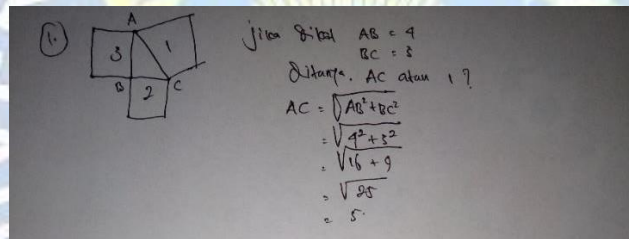 1.
A
3
1
B
2
C
jika diket AB = 4
BC = 3
Ditanya. AC atau 1 ?
AC = √AB²+BC²
= √4²+3²
= √16 + 9
= √25
= 5.